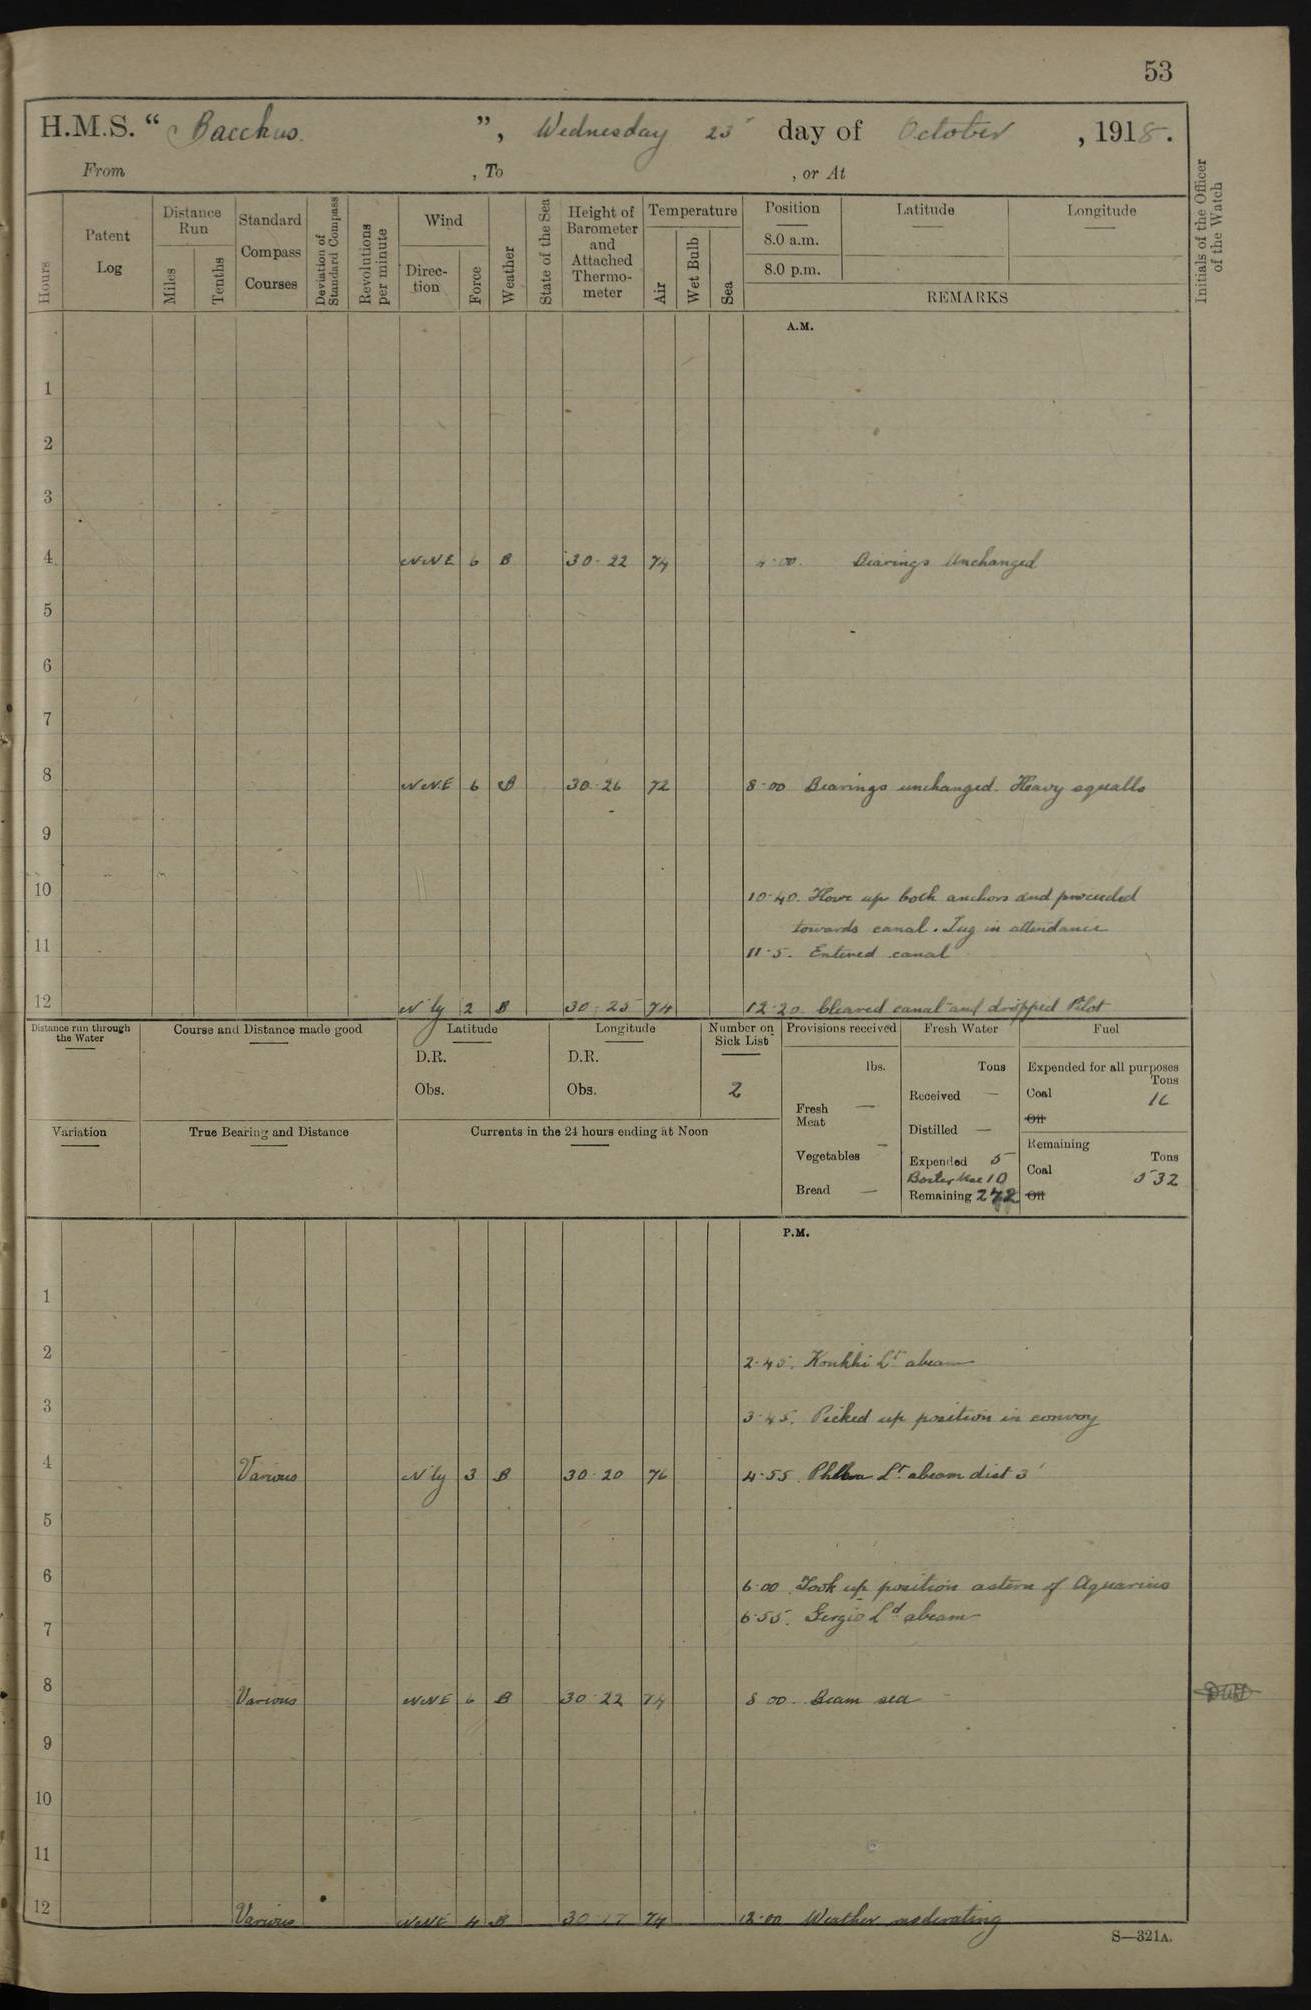 53
H.M.S. “ Bacchus. ”, Wednesday 23 day of October , 1918.
From , To , or At
Hours
Patent Log
Distance Run
Miles
Tenths
Standard Compass Courses
Deviation of Standard Compass
Revolutions per minute
Wind
Direc-tion
Force
Weather
State of the Sea
Height of Barometer and Attached Thermo-meter
Temperature
Air
Wet Bulb
Sea
Position
8.0 a.m.
8.0 p.m.
Latitude
Longitude
REMARKS
Initials of the Officer of the Watch
A.M.
1
2
3
4 NNE 6 B 30·22 74 4·00. Bearings Unchanged
5
6
7
8 NNE 6 B 30·26 72 8·00 Bearings unchanged. Heavy squalls
9
10 10·40. Hove up both anchors and proceeded
towards canal. Tug in attendance
11 11·5. Entered canal
12 N'ly 2 B 30·25 74 12·20 Cleared canal and dropped Pilot
Distance run through the Water
Course and Distance made good
Latitude
D.R.
Obs.
Longitude
D.R.
Obs.
Number on Sick List
2
Provisions received
lbs.
Fresh Meat —
Vegetables —
Bread —
Fresh Water
Tons
Received —
Distilled —
Expended 5
Boiler Use 10
Remaining 272
Fuel
Expended for all purposes
Tons
Coal 16
Oil
Remaining
Tons
Coal 532
Oil
Variation
True Bearing and Distance
Currents in the 24 hours ending at Noon
P.M.
1
2
2·45. Lt abeam
3
3·45. Picked up position in convoy
4 Various N'ly 3 B 30·20 76 4·55. Lt abeam dist 3'
5
6 6·00 Took up position astern of Aquarius
6·55. Gergio Ld abeam
7
8 Various NNE 6 B 30·22 74 8 00. Beam sea
9
10
11
12 Various NNE 4 B 30·17 74 12·00 Weather moderating
S—321A.